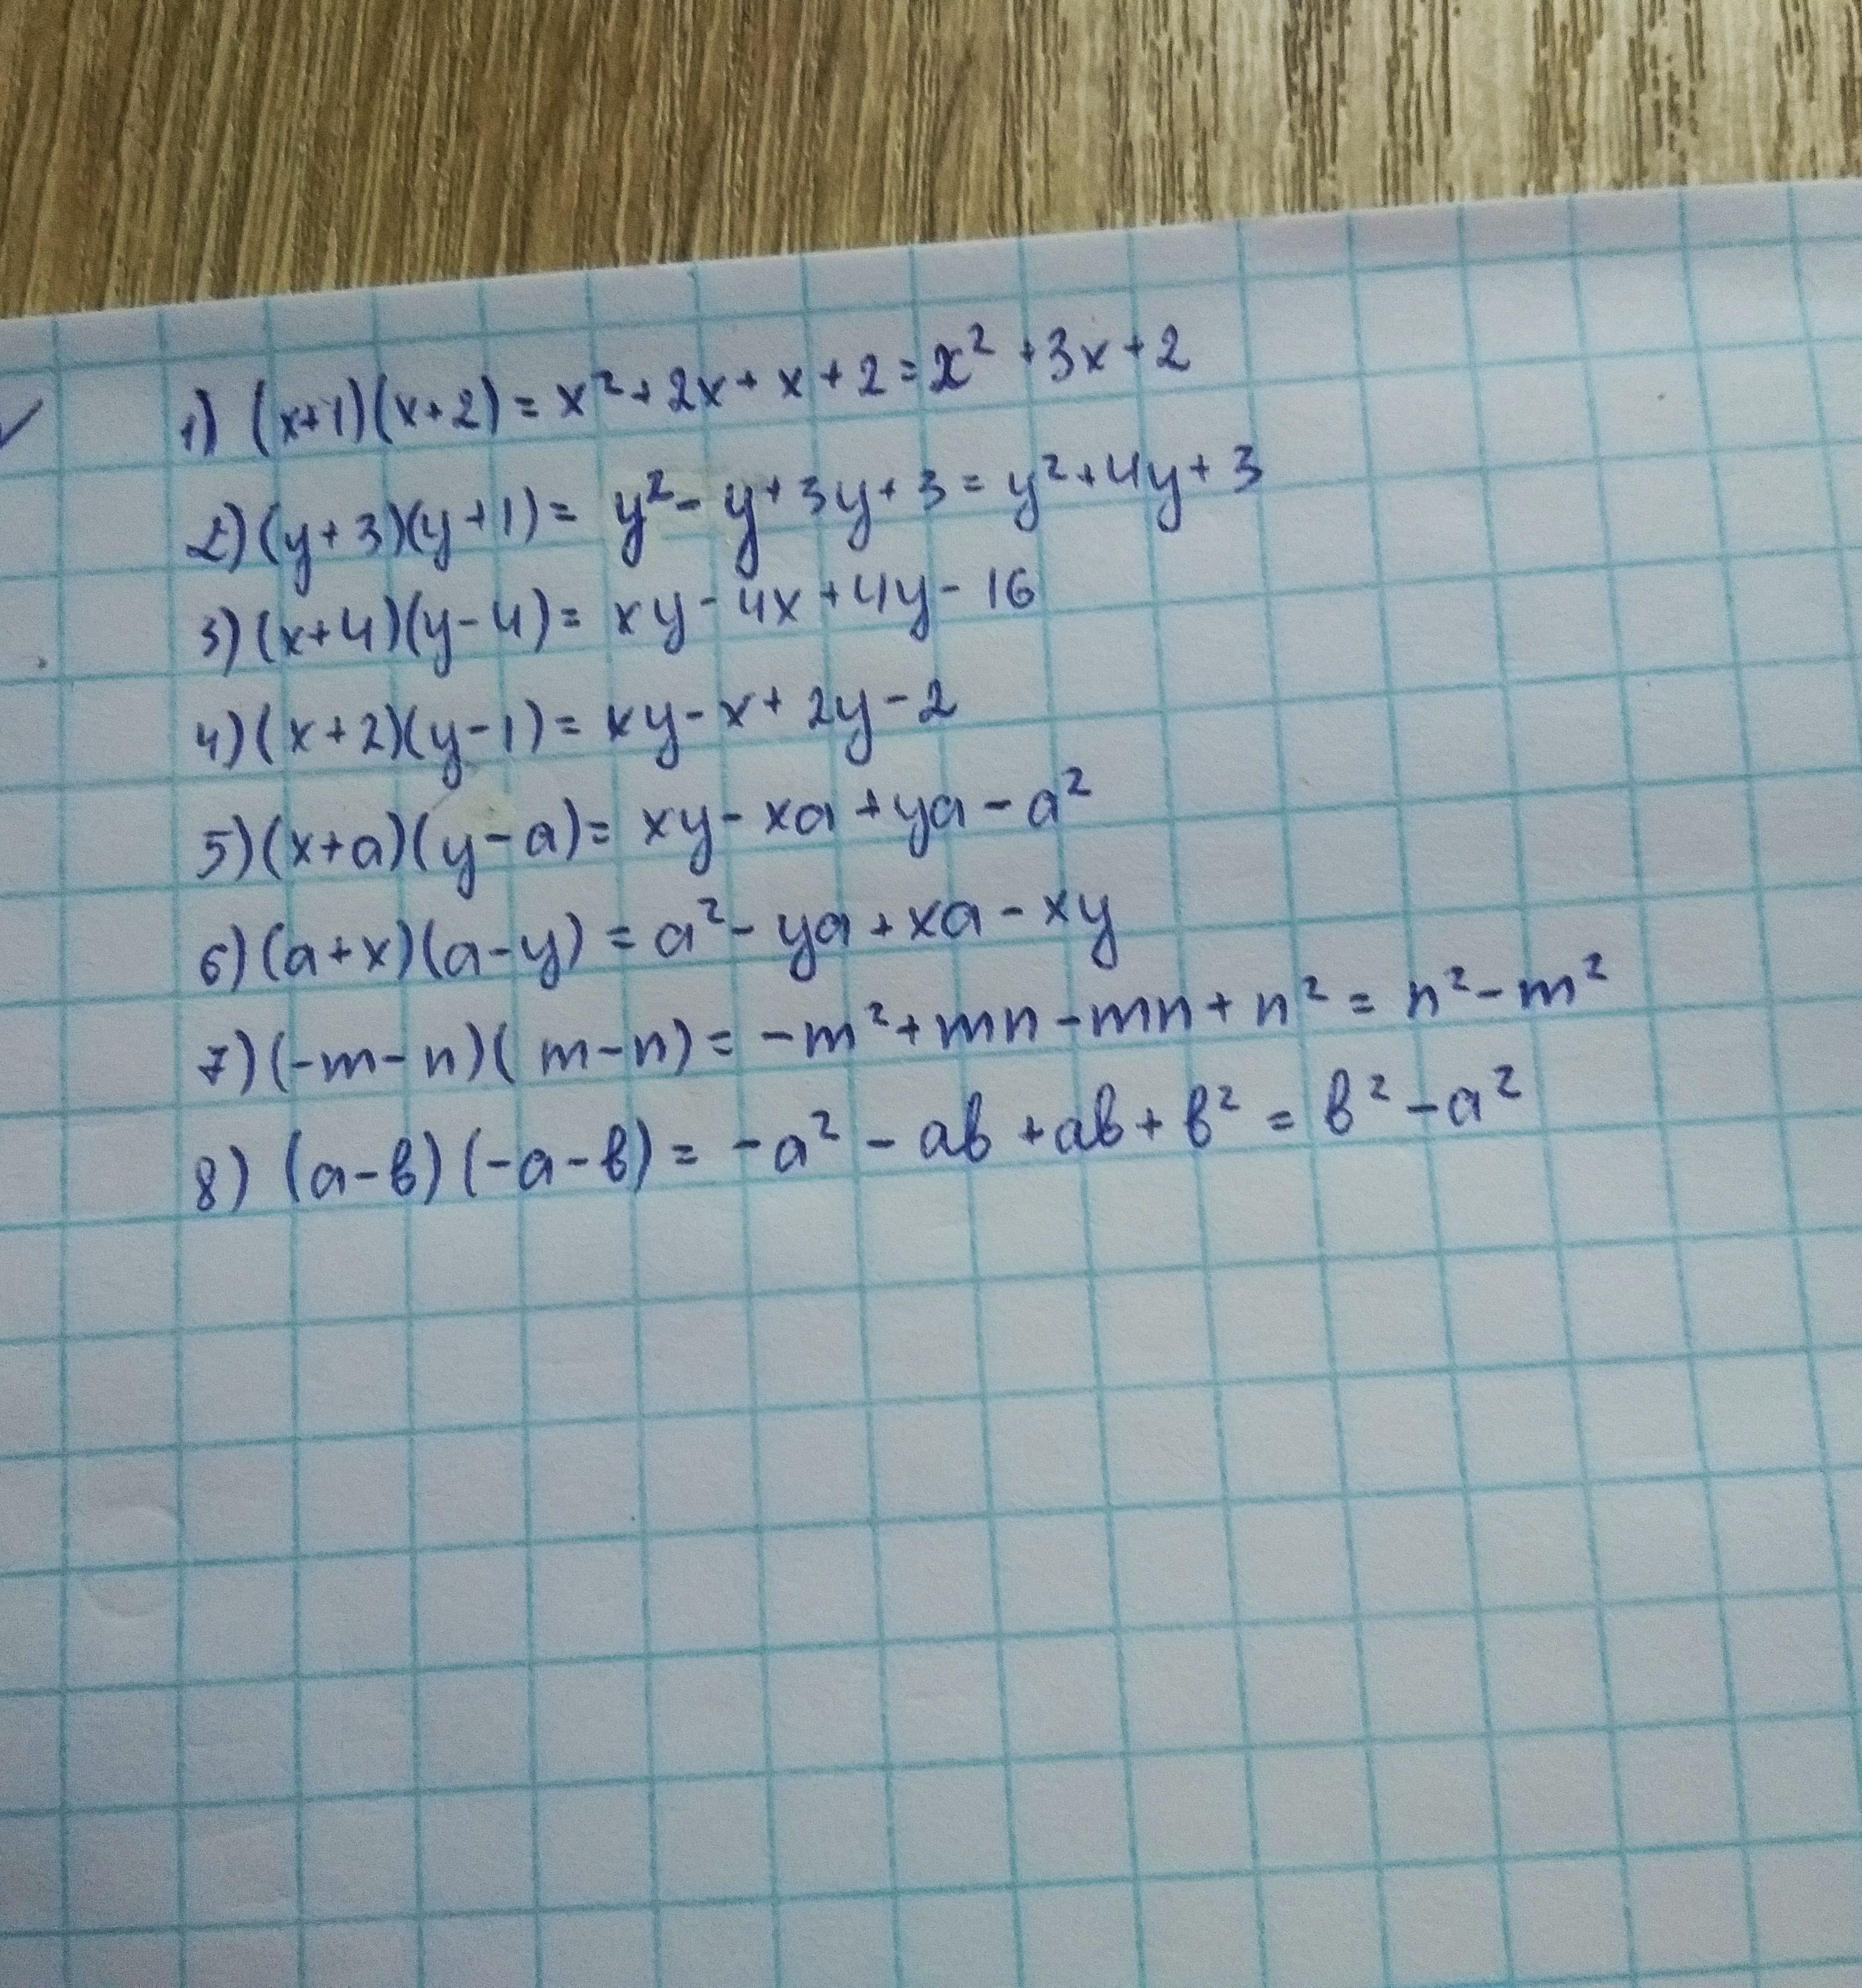 1) (x+1)(x+2) = x²+2x+x+2=x²+3x+2
2) (y+3)(y+1)= y²-y+3y+3=y²+4y+3
3) (x+4)(y-4)= xy-4x+4y-16
4) (x+2)(y-1)= xy-x+2y-2
5) (x+a)(y-a)= xy-xa+ya-a²
6) (a+x)(a-y)=a²-ya+xa-xy
7) (-m-n)(m-n)=-m²+mn-mn+n²=n²-m²
8) (a-в)(-a-в)=-a²-aв+aв+в²=в²-a²